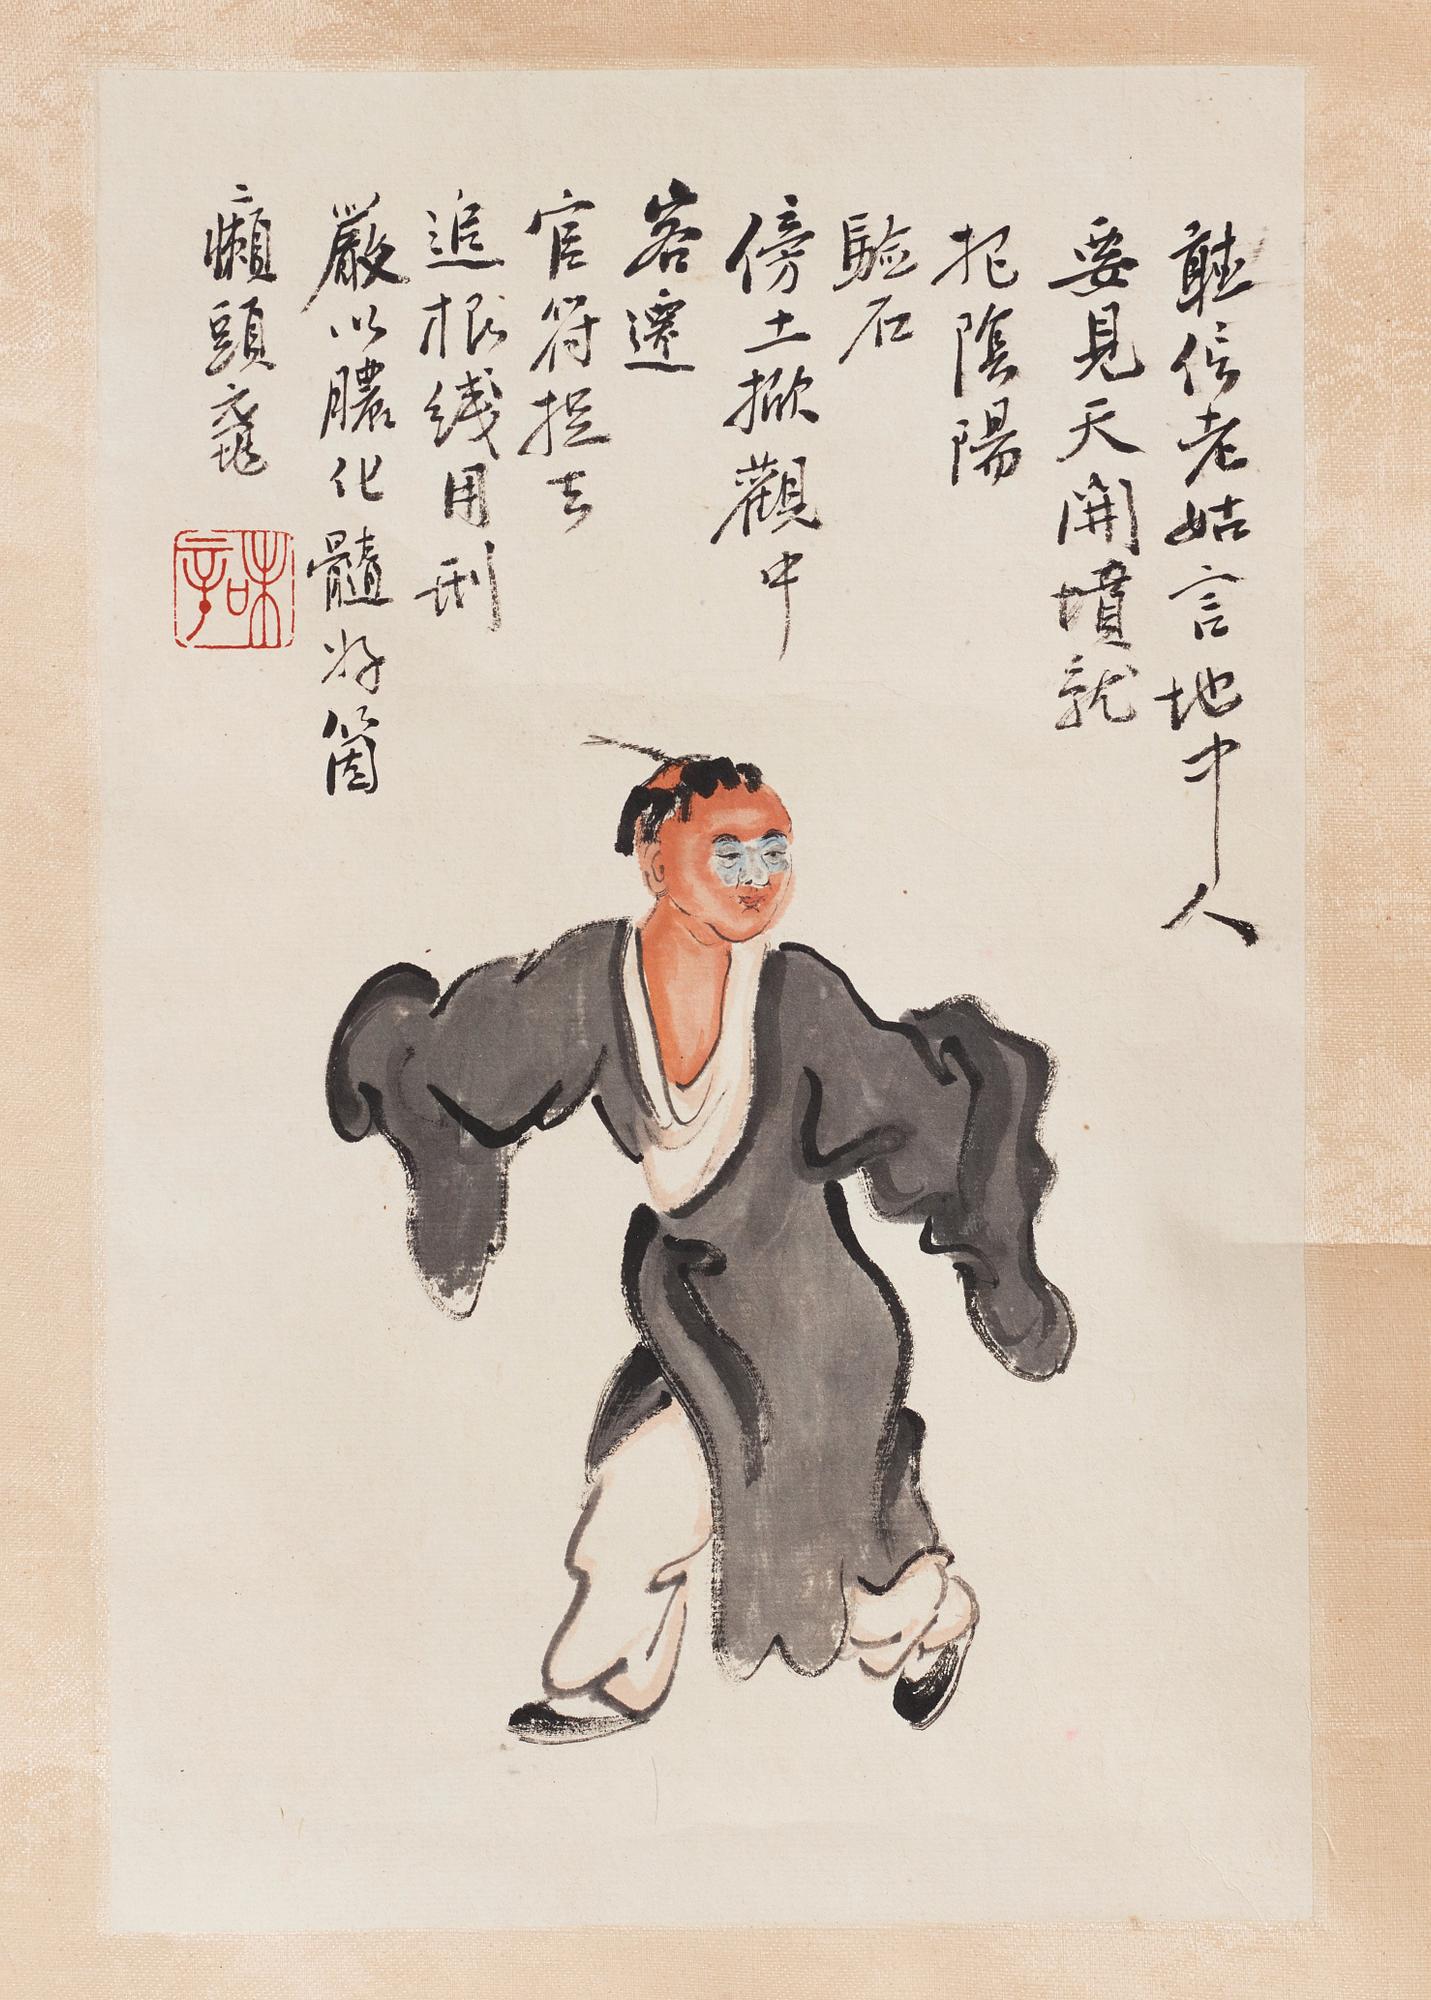 聽信老姑言地中人
要見天開墳就
犯陰陽
驗石
傍土掀觀中
客遷
官符捉去
追根綫用刑
嚴以膿化髓好箇
癩頭黿